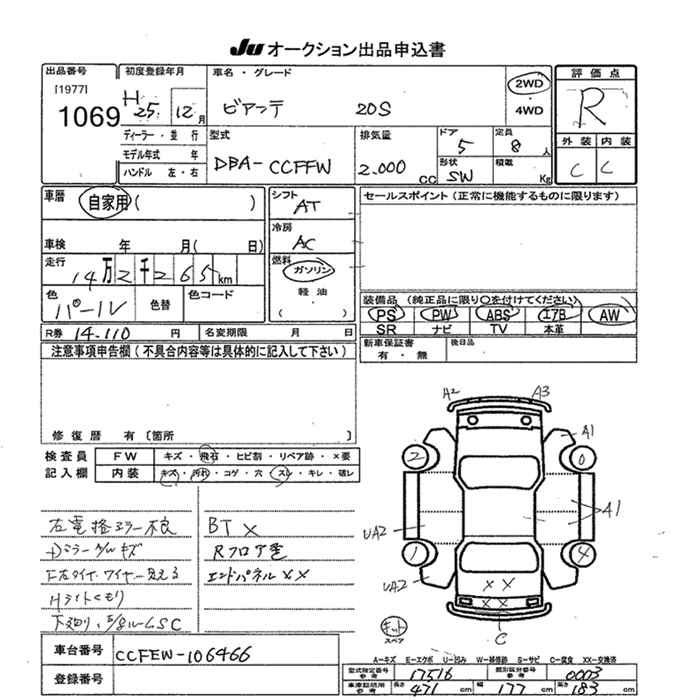 JU オークション出品申込書
出品番号
[1977]
1069
初度登録年月
H 25 12月
車名・グレード
ビアンテ 20S
2WD
・
4WD
評価点
R
ディーラー・並行
モデル年式 年
ハンドル 左・右
型式
DBA-CCFFW
排気量
2.000 CC
ドア
5
定員
8人
形状
SW
積載
Kg
外装 内装
C C
車歴
自家用( )
車検 年 月( 日)
走行
14万2千265km
色
パール
色替
色コード
シフト
AT
冷房
AC
燃料
ガソリン
軽油
( )
セールスポイント(正常に機能するものに限ります)
装備品(純正品に限り○を付けてください)
PS PW ABS エアB AW
SR ナビ TV 本革
R券 14.110 円 名変期限 月 日
新車保証書
有・無
後日品
注意事項申告欄(不具合内容等は具体的に記入して下さい)
修復歴 有 〔箇所 〕
検査員
記入欄
FW キズ・飛石・ヒビ割・リペア跡・×要
内装 キズ・汚れ・コゲ・穴・スレ・キレ・破レ
左電格ミラー不良
Dミラーウ/Wキズ
F左タイヤ・ワイヤー見える
Hライトくもり
BT ×
Rフロア歪
エンドパネル××
A2 A3
A1
2 0
A1
UA2
1 4
UA2
××
××
C
キット
スペア
A-キズ E-エクボ U-凹み W-補修跡 S-サビ C-腐食 XX-交換済
車台番号
CCFEW-106466
登録番号
型式指定番号 17516 類別区分番号 0003
車庫証明用 長さ 471 cm 幅 177 cm 高さ 183 cm